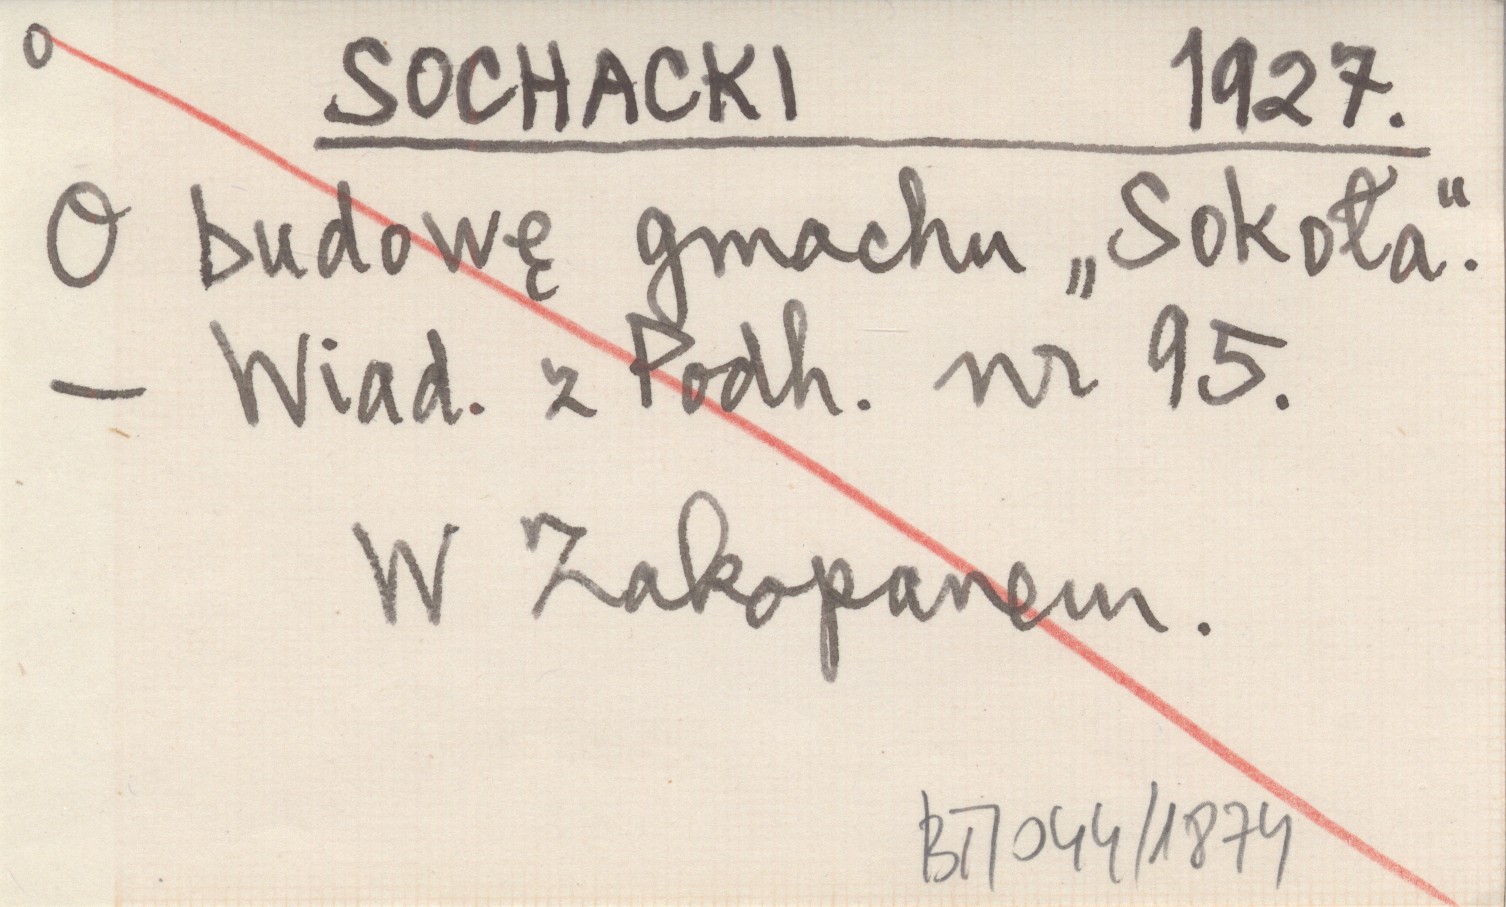 o SOCHACKI 1927.
O budowę gmachu „Sokoła“.
— Wiad. z Podh. nr 95.
W Zakopanem.
BT/044/1874